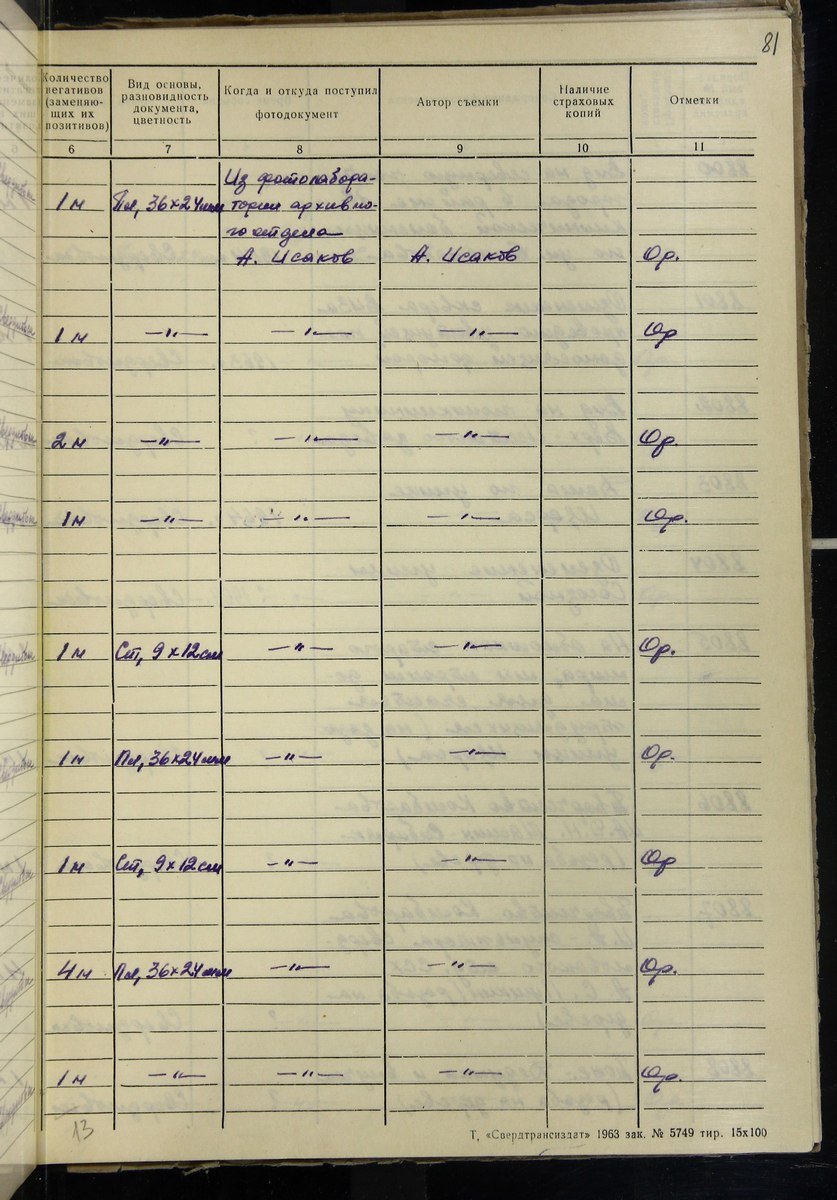 81
Количество негативов (заменяющих их позитивов)
Вид основы, разновидность документа, цветность
Когда и откуда поступил фотодокумент
Автор съемки
Наличие страховых копий
Отметки
6 7 8 9 10 11
Из фотолабора-
1 н Пл, 36×24мм тории архивно-
го отдела
А. Исаков А. Исаков Ор.
1 н —"— —"— —"— Ор
2 н —"— —"— —"— Ор.
1 н —"— —"— —"— Ор.
1 н Ст, 9×12см —"— —"— Ор.
1 н Пл, 36×24мм —"— —"— Ор.
1 н Ст, 9×12см —"— —"— Ор
4 н Пл, 36×24мм —"— —"— Ор.
1 н —"— —"— —"— Ор.
13
Т, «Свердтрансиздат» 1963 зак. № 5749 тир. 15х100